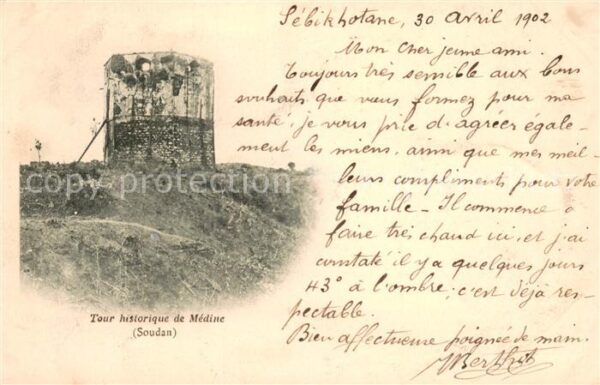 Sébikhotane, 30 Avril 1902
Mon cher jeune ami.
Toujours très sensible aux bons
souhaits que vous formez pour ma
santé, je vous prie d'agréer égale-
ment les miens, ainsi que mes meil-
leurs compliments pour votre
famille - Il commence à
faire très chaud ici, et j'ai
constaté il y a quelques jours
43° à l'ombre; c'est déjà res-
pectable.
Bien affectueuse poignée de main.
Berthet
Tour historique de Médine
(Soudan)
copy protection